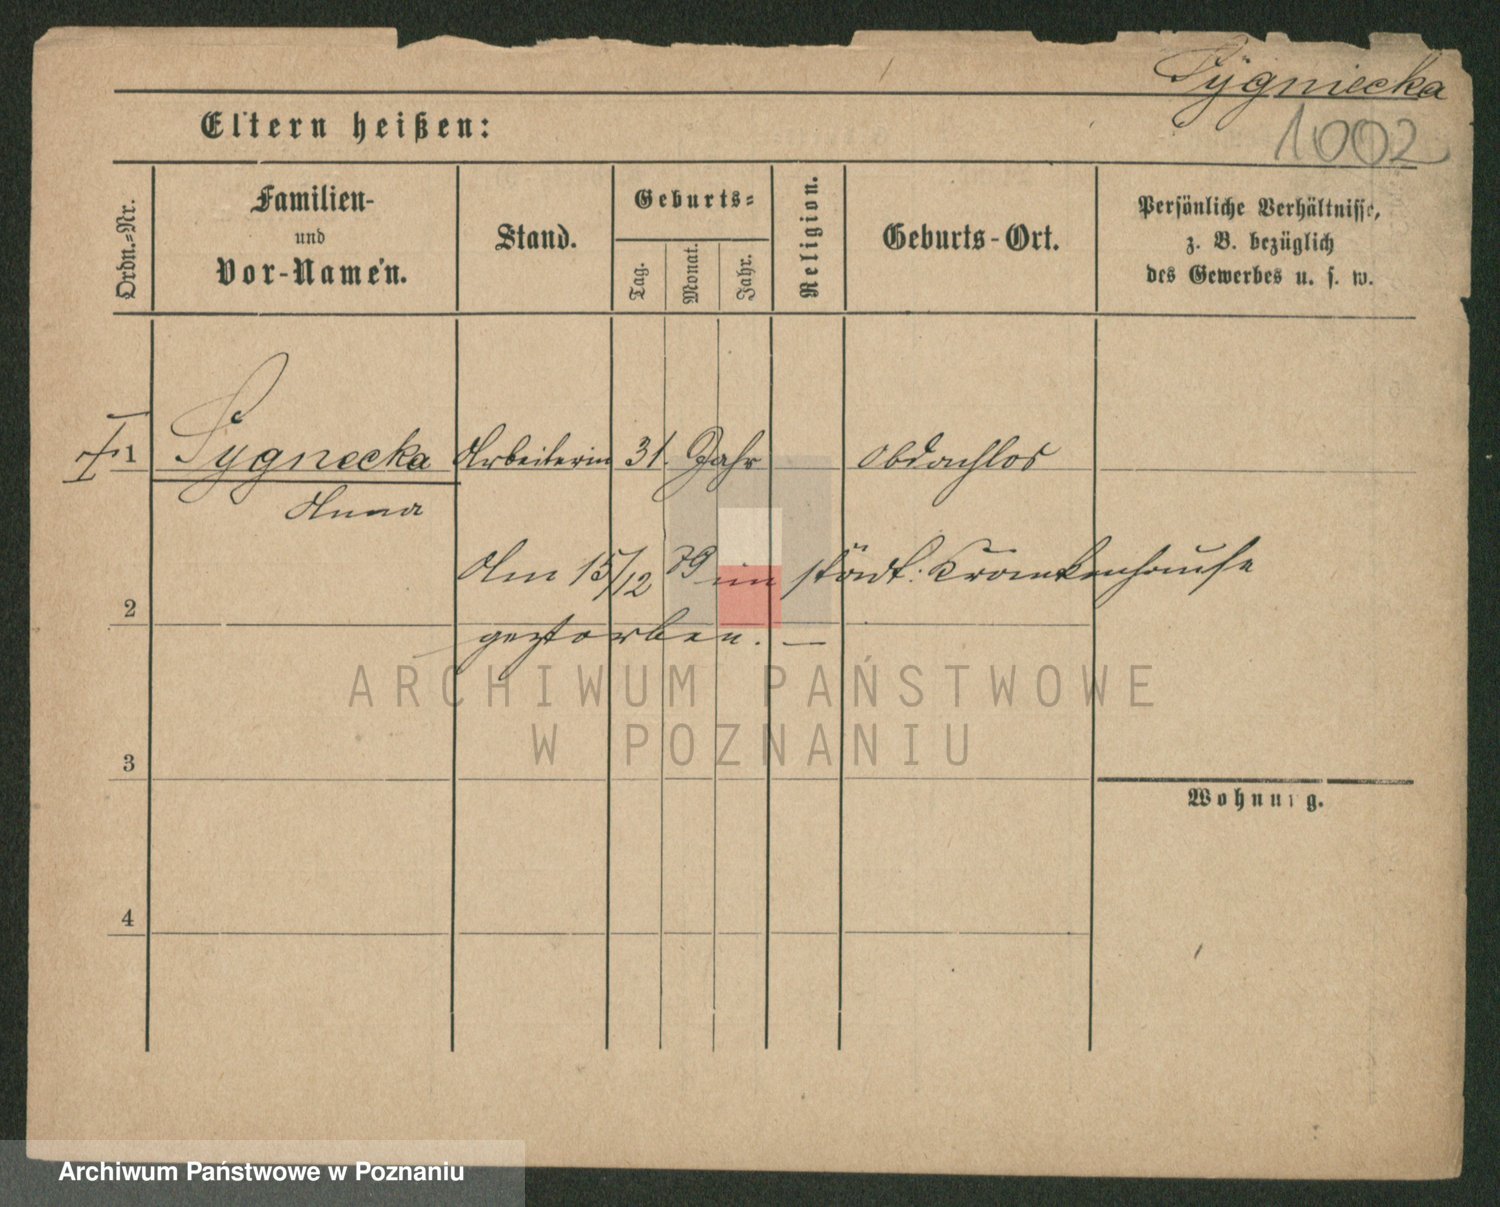 Pygniecka
1002
Eltern heißen:
Ordn.=Nr.
Familien-
und
Vor-Namen.
Stand.
Geburts=
Tag.
Monat.
Jahr.
Religion.
Geburts-Ort.
Persönliche Verhältnisse,
z. B. bezüglich
des Gewerbes u. s. w.
1 Pygnecka Arbeiterin 31. Jahr Obdachlos
Anna
Am 15/12 79 im städt. Krankenhause
2
gestorben. —
ARCHIWUM PAŃSTWOWE
W POZNANIU
3
Wohnung.
4
Archiwum Państwowe w Poznaniu